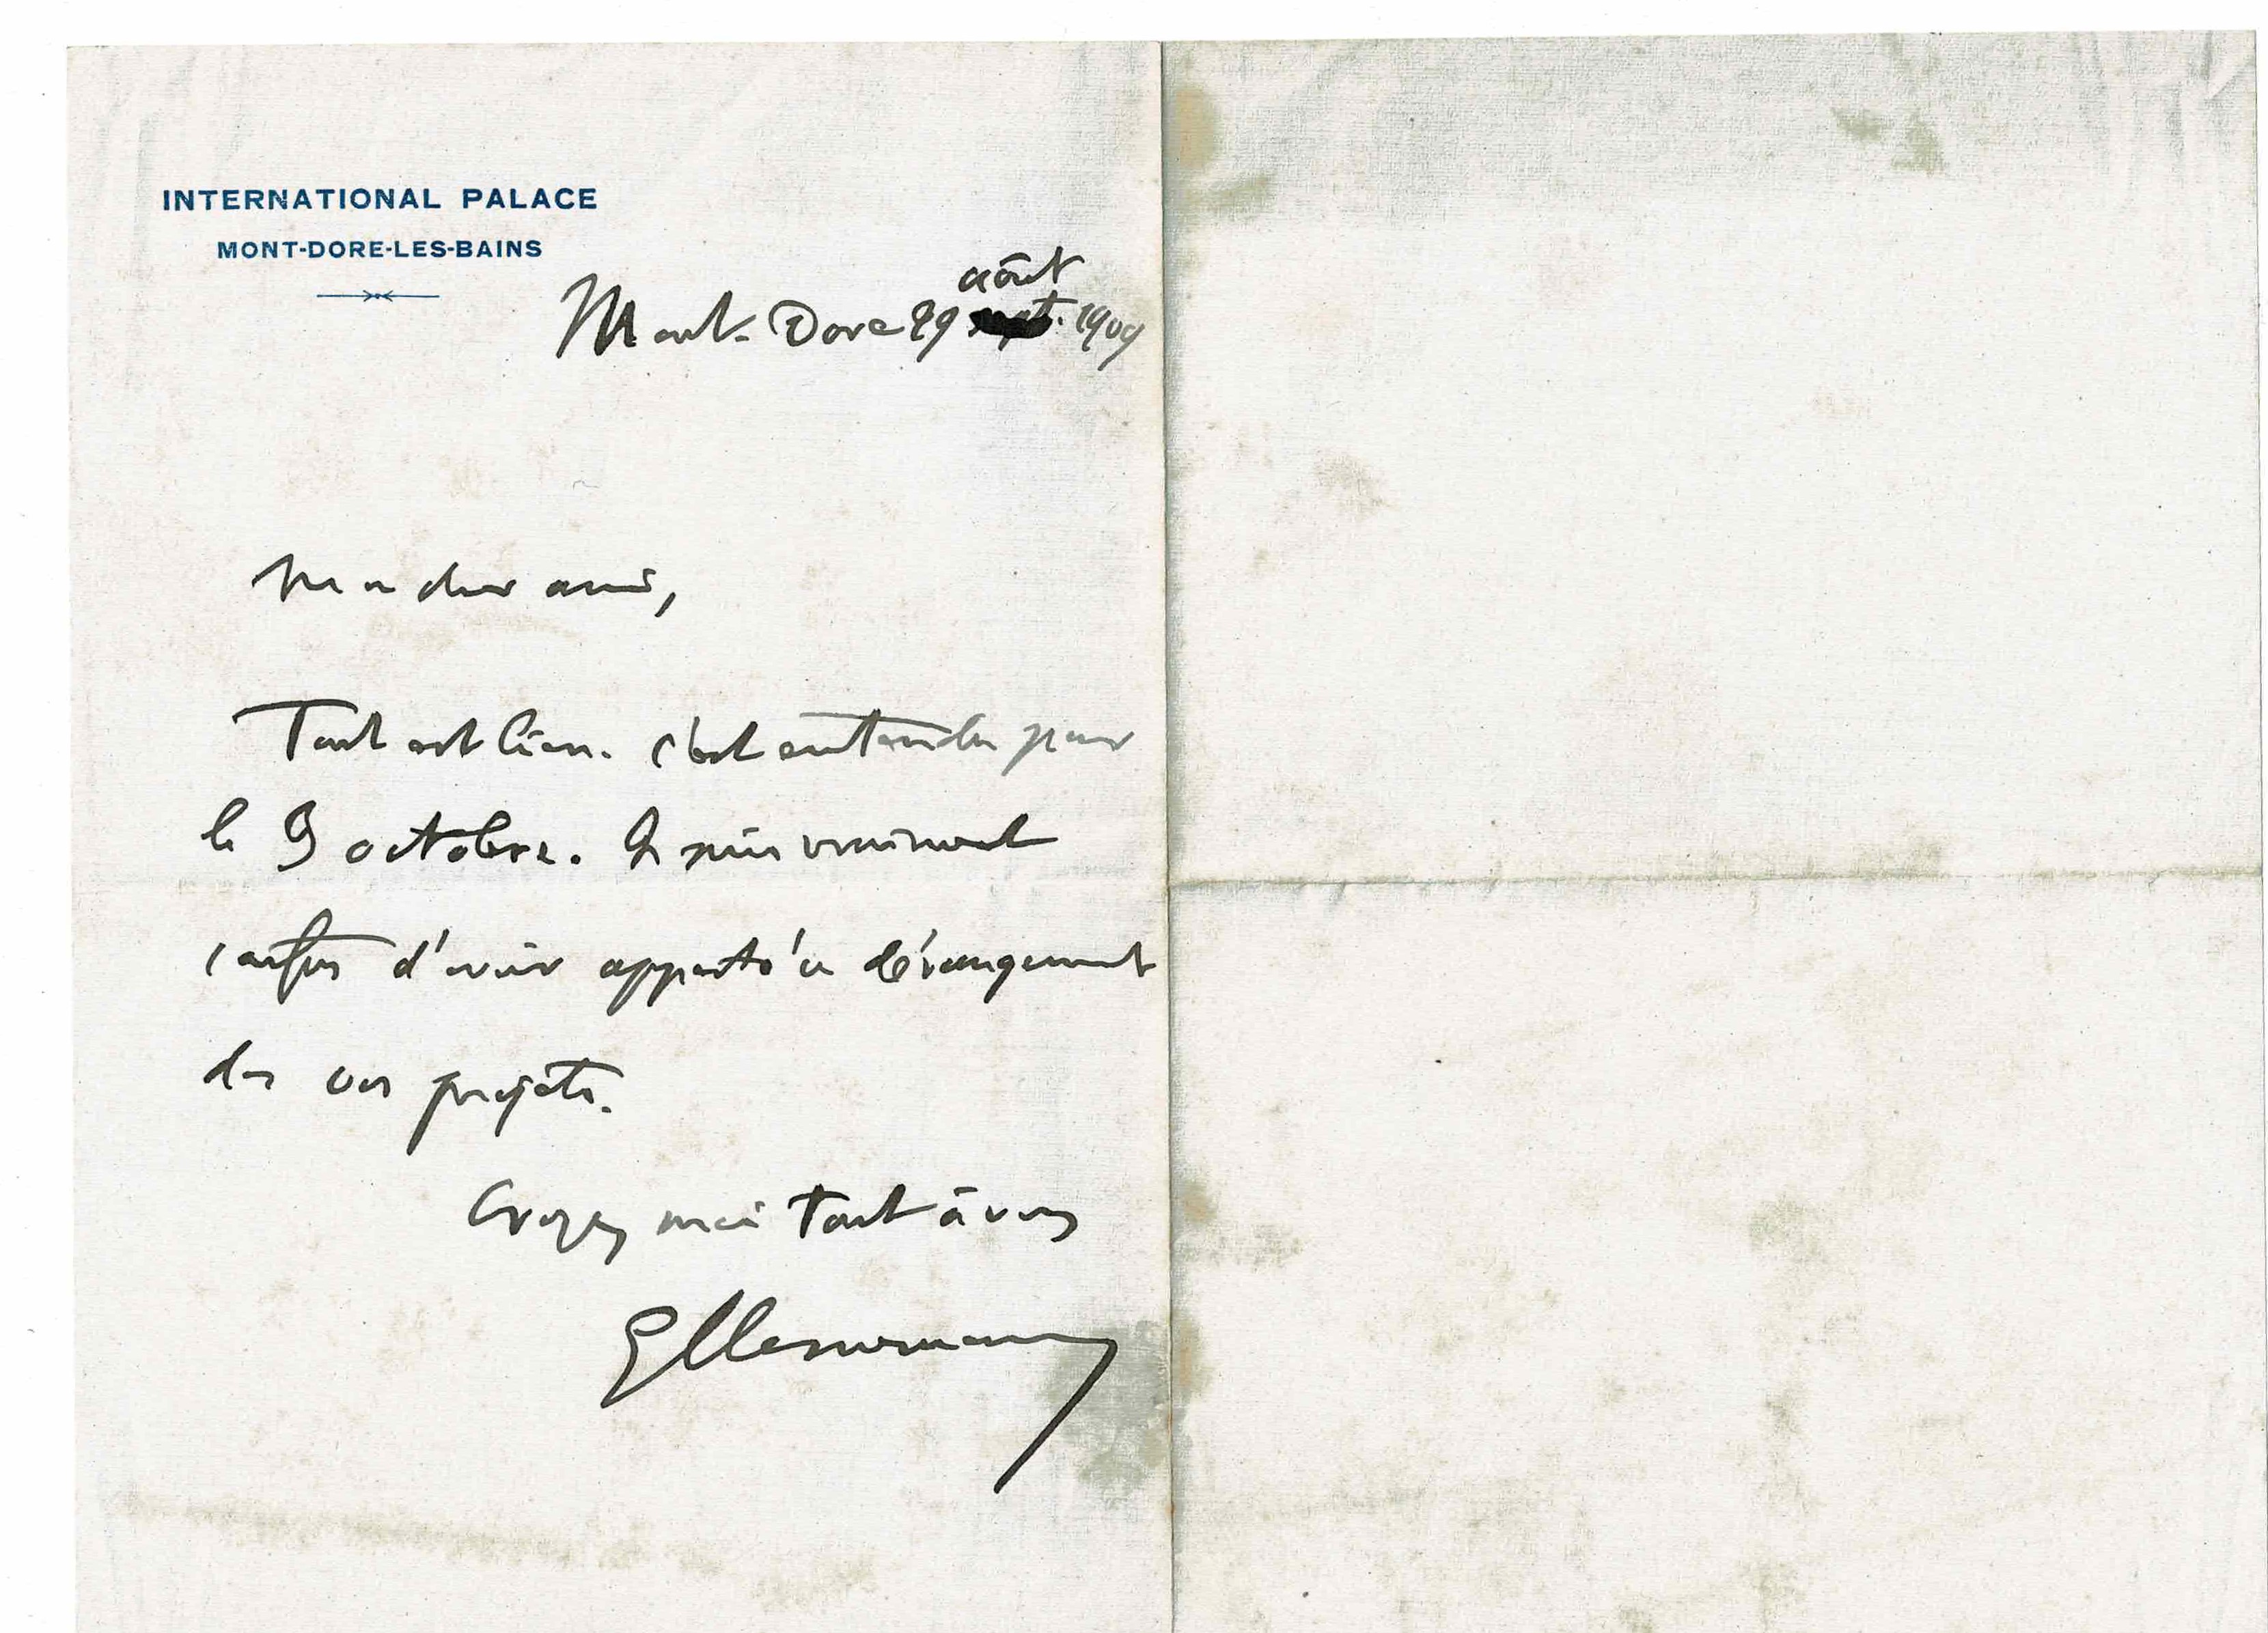 INTERNATIONAL PALACE
MONT-DORE-LES-BAINS
août
Mont-Dore 29 1909
Mon cher ami,
Tout est bien. C'est entendu pour
le 9 octobre. Je suis vraiment
confus d'avoir apporté ce dérangement
dans vos projets.
Croyez moi tout à vous